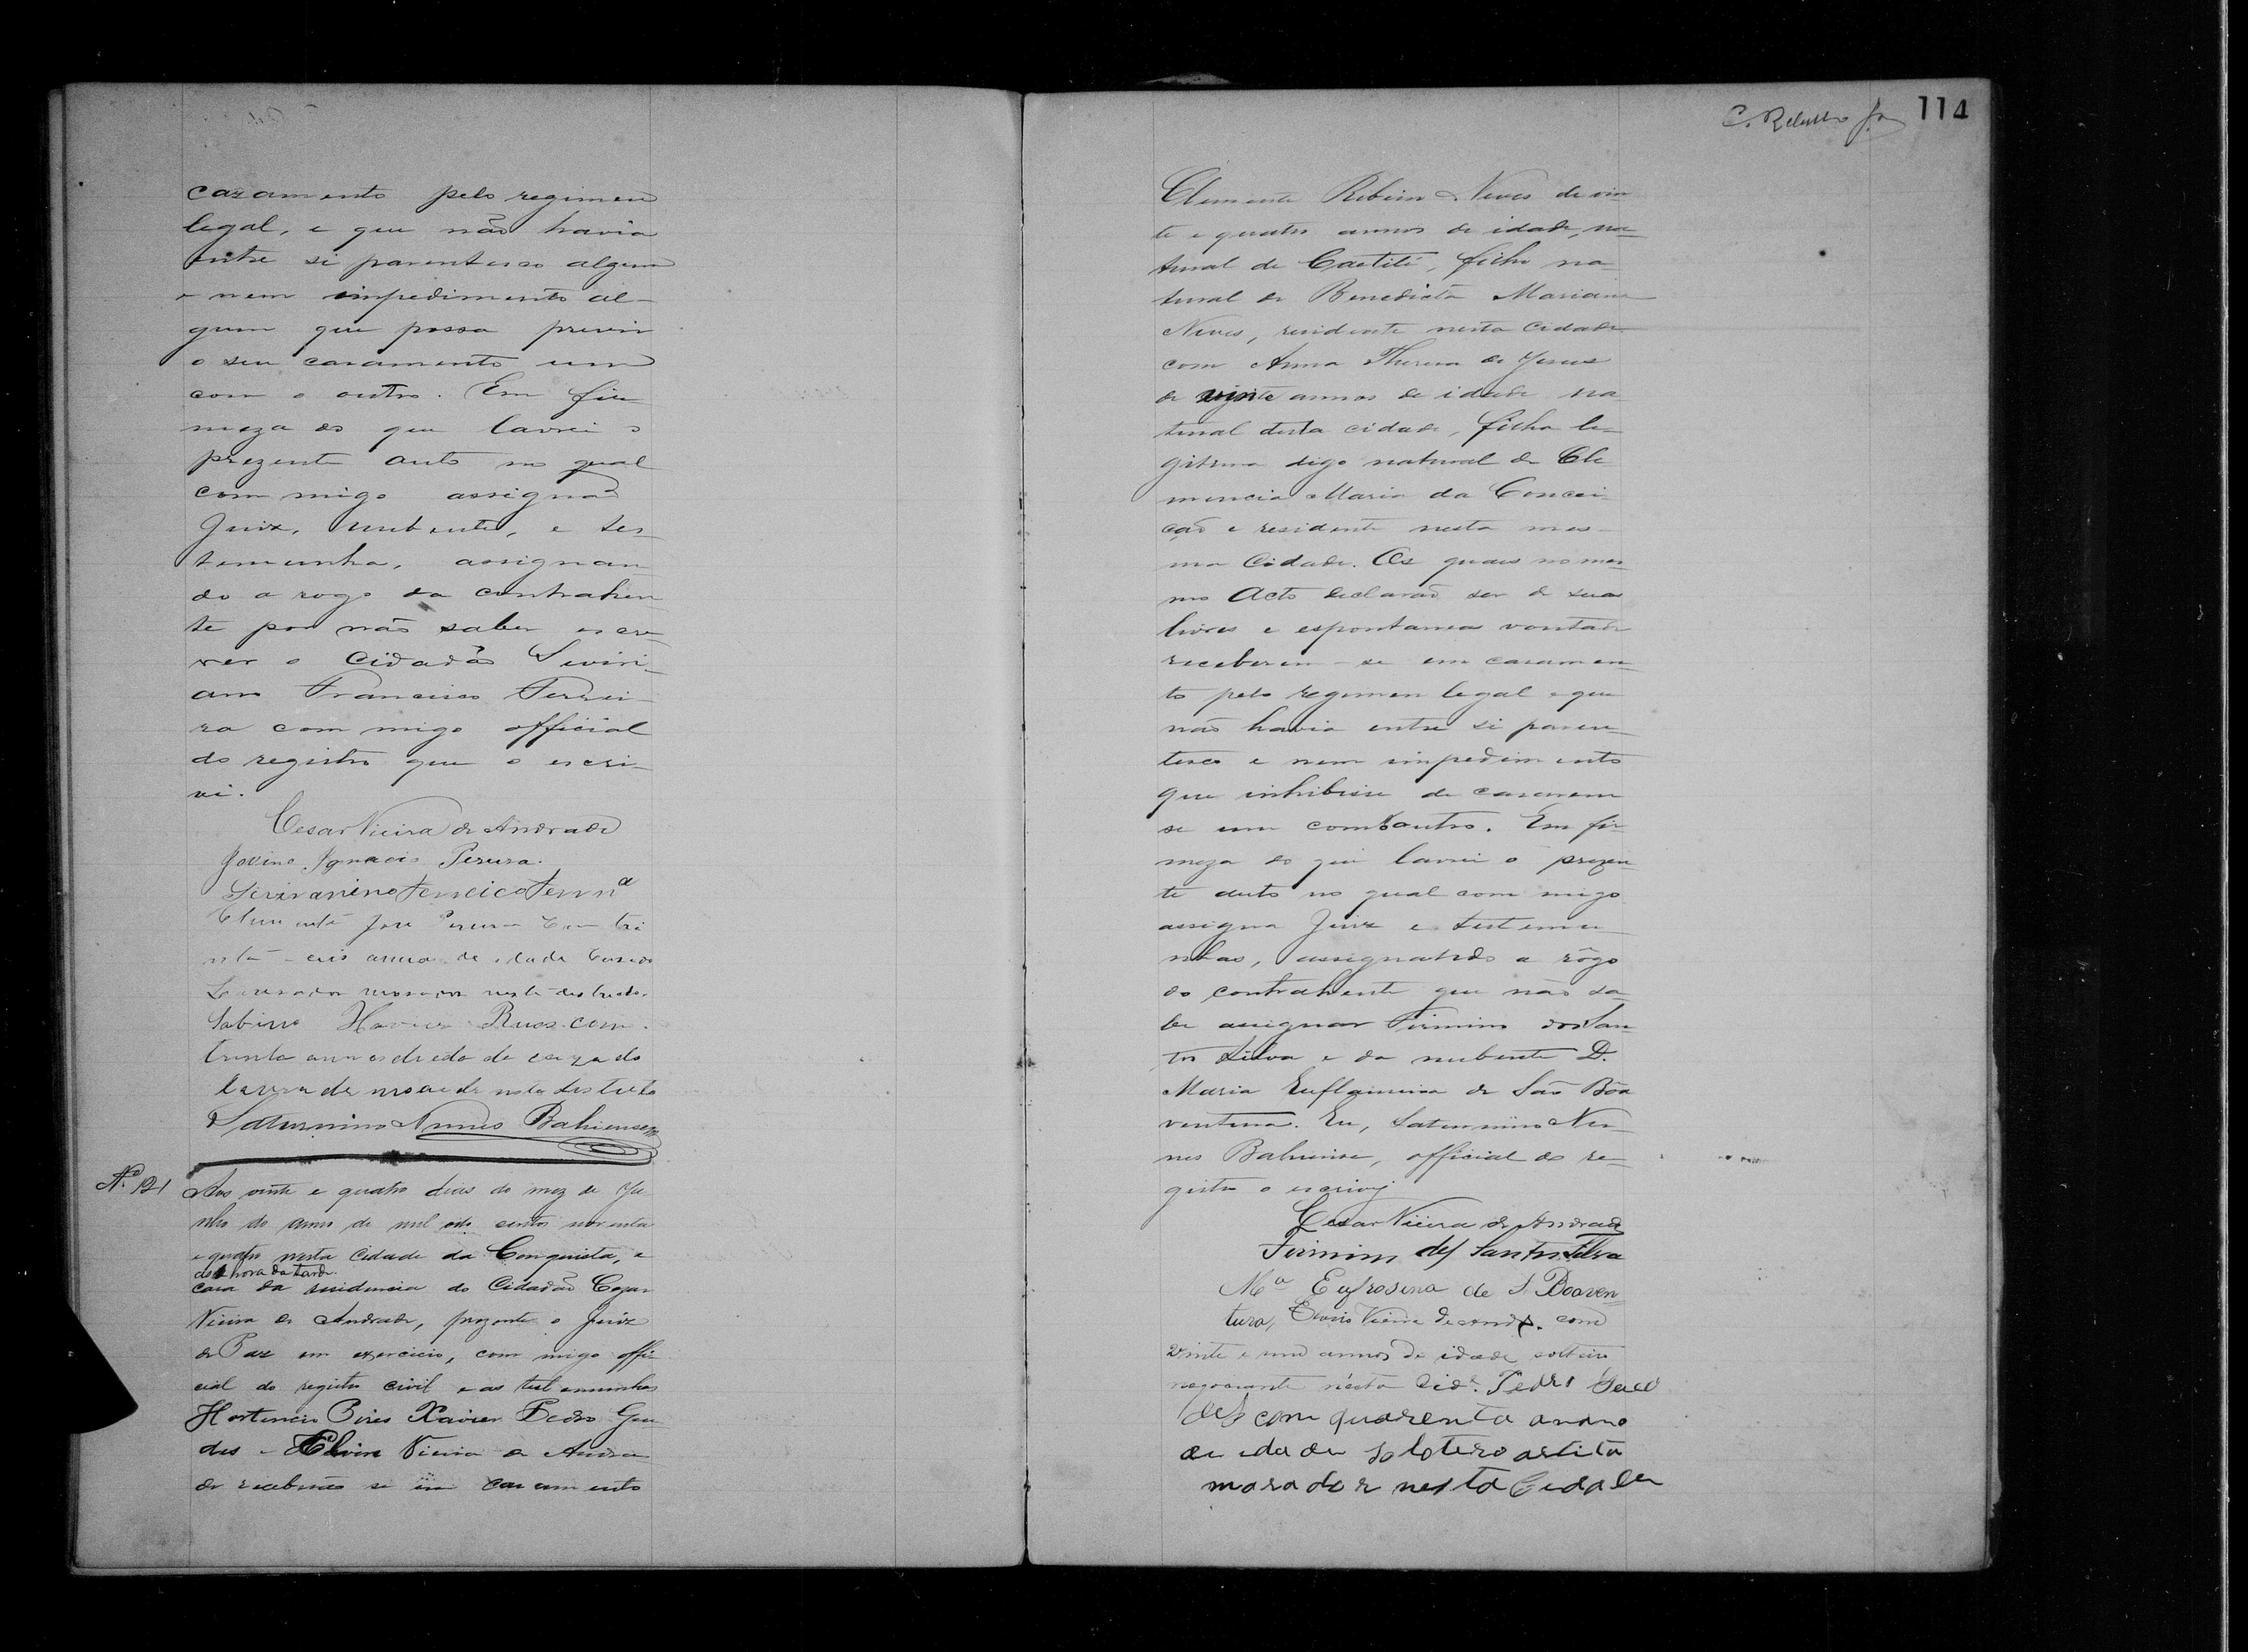 cazamento pelo regimen
legal, e que não havia
entre si parentesco algum
e nem impedimento al-
gum que possa previr
o seu cazamento um
com o outro. Em fir-
meza do que lavrei o
prezente auto no qual
com migo assignão
Juiz, nubente, e tes-
temunha, assignan-
do a rogo da contrahen-
te por não saber escre-
ver o Cidadão Siviri-
ano Francisco Ferrei-
ra com migo official
do registro que o escri-
vi.
Cesar Vieira de Andrade
Jovino Ignacio Pereira.
Clemente José Pereira com tri
nta e ceis annos de idade Cazado
Lavrador morador neste destricto.
Sabino Xavier com
trinta annos de edade cazado
lavrador morador nesta destricto
Saturnino Nunes Bahiense
Nº 121
Aos vinte e quatro dias do mez de Ju
nho do anno de mil oito centos noventa
e quatro nesta Cidade da Conquista, e
hora da tarde.
casa da residencia do Cidadão Cezar
Vieira de Andrade, prezente o Juiz
de Paz em exercicio, com migo offi-
cial do registro civil e as testemunhas
Hortencio Pires Xavier Pedro Gue-
des e Elvin Vieira de Andra-
de receberão se em cazamento
114
Clemente Ribeiro Neves de vin
te e quatro annos de idade, na-
tural de Caetité, filho na-
tural de Benedicta Mariana
Neves, residente nesta Cidade
com Anna Thereza de Jesus
de vinte annos de idade na
tural desta cidade, filha le-
gitima digo natural de Cle
mencia Maria da Concei-
ção e residente nesta mes-
ma Cidade. Os quaes no mes-
mo Acto declarão ser de suas
livres e espontanea vontade
receberem-se em casamen-
to pelo regimen legal e que
não havia entre si paren-
tesco e nem impedimento
que inhibisse de casarem
se um com o outro. Em fir-
meza do que lavrei o prezen-
te auto no qual com migo
assigna Juiz e testemu-
nhas, assignando a rôgo
do contrahente que não sa-
be assignar Firmino dos San-
tos Silva e da nubente D.
Maria de São Bôa
ventura. Eu, Saturnino Nu-
nes Bahiense, official do re-
gistro o escrivy
Cesar Vieira de Andrade
Firmino dos Santos Silva
Mª Eufrosina de S. Boaven-
tura, Vieira de Andr. com
vinte e um annos de idade solteiro
negociante nésta Cidᵉ. Pedro Gue
des com quarenta anno
de idade solotero artita
morador nesta Cidade